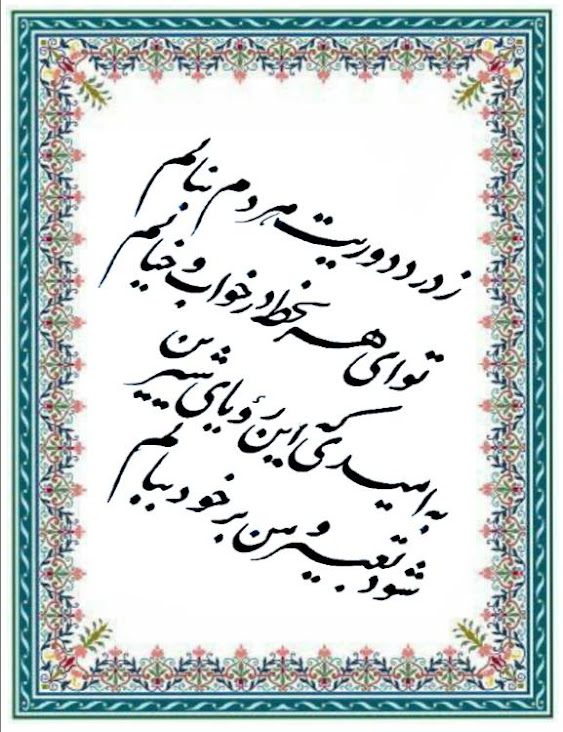 ز درد دوریت هر دم بنالم
تو ای هر لحظه در خواب و خیالم
به امیدی که این رؤیای شیرین
شود تعبیر و من بر خود ببالم